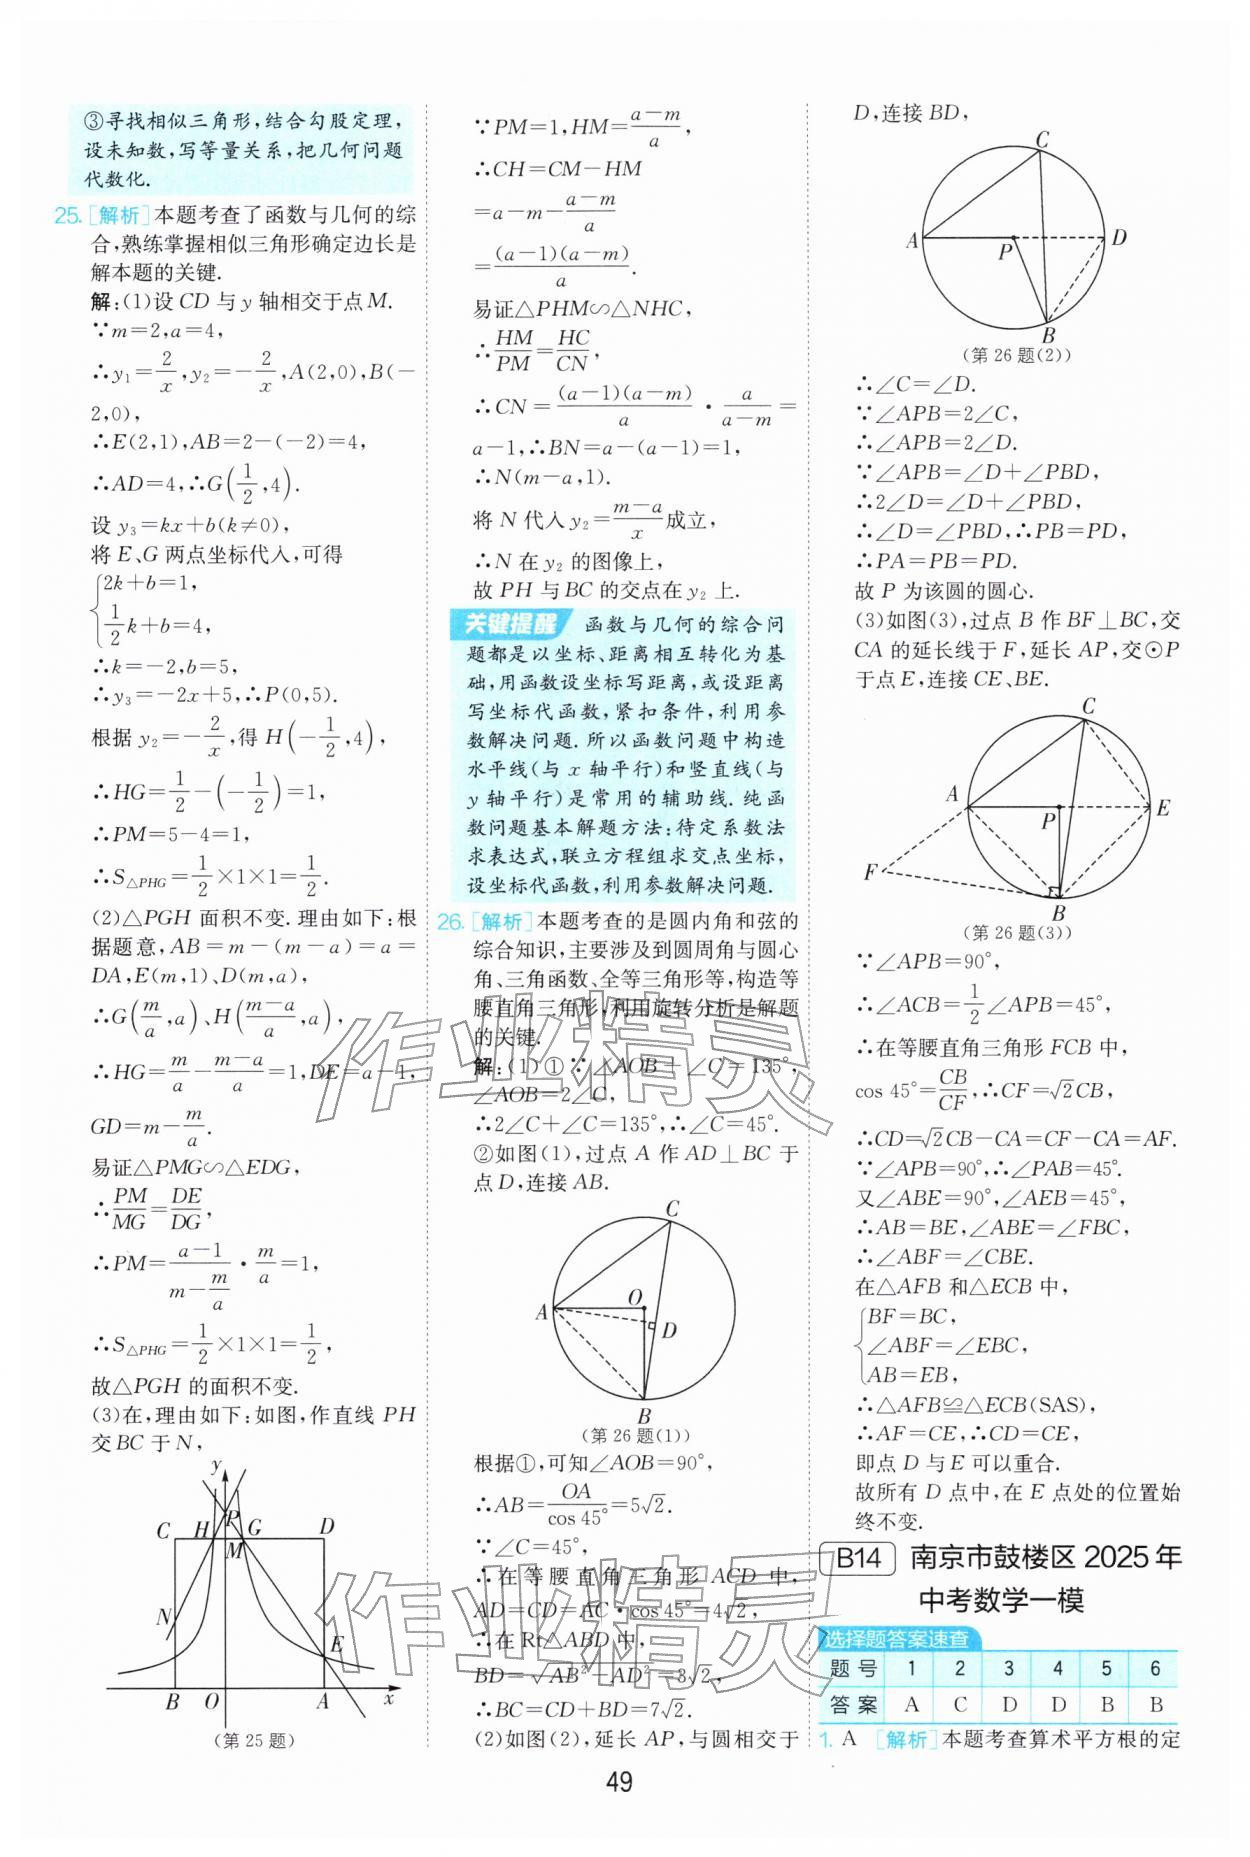 ③寻找相似三角形,结合勾股定理,
设未知数,写等量关系,把几何问题
代数化.
25. [解析]本题考查了函数与几何的综
合,熟练掌握相似三角形确定边长是
解本题的关键.
解:(1)设 CD 与 y 轴相交于点 M.
∵m=2,a=4,
∴y₁=2/x,y₂=-2/x,A(2,0),B(-
2,0),
∴E(2,1),AB=2-(-2)=4,
∴AD=4,∴G(1/2,4).
设 y₃=kx+b(k≠0),
将 E、G 两点坐标代入,可得
{2k+b=1,
1/2k+b=4,
∴k=-2,b=5,
∴y₃=-2x+5,∴P(0,5).
根据 y₂=-2/x,得 H(-1/2,4),
∴HG=1/2-(-1/2)=1,
∴PM=5-4=1,
∴S△PHG=1/2×1×1=1/2.
(2)△PGH 面积不变.理由如下:根
据题意,AB=m-(m-a)=a=
DA,E(m,1)、D(m,a),
∴G(m/a,a)、H((m-a)/a,a),
∴HG=m/a-(m-a)/a=1,DE=a-1,
GD=m-m/a.
易证△PMG∽△EDG,
∴PM/MG=DE/DG,
∴PM=(a-1)/(m-m/a)·m/a=1,
∴S△PHG=1/2×1×1=1/2,
故△PGH 的面积不变.
(3)在,理由如下:如图,作直线 PH
交 BC 于 N,
y
P
C H G D
M
N
E
B O A x
(第 25 题)
∵PM=1,HM=(a-m)/a,
∴CH=CM-HM
=a-m-(a-m)/a
=(a-1)(a-m)/a.
易证△PHM∽△NHC,
∴HM/PM=HC/CN,
∴CN=(a-1)(a-m)/a·a/(a-m)=
a-1,∴BN=a-(a-1)=1,
∴N(m-a,1).
将 N 代入 y₂=(m-a)/x成立,
∴N 在 y₂ 的图像上,
故 PH 与 BC 的交点在 y₂ 上.
关键提醒 函数与几何的综合问
题都是以坐标、距离相互转化为基
础,用函数设坐标写距离,或设距离
写坐标代函数,紧扣条件,利用参
数解决问题.所以函数问题中构造
水平线(与 x 轴平行)和竖直线(与
y 轴平行)是常用的辅助线.纯函
数问题基本解题方法:待定系数法
求表达式,联立方程组求交点坐标,
设坐标代函数,利用参数解决问题.
26. [解析]本题考查的是圆内角和弦的
综合知识,主要涉及到圆周角与圆心
角、三角函数、全等三角形等,构造等
腰直角三角形,利用旋转分析是解题
的关键.
解:(1)①∵∠AOB+∠C=135°,
∠AOB=2∠C,
∴2∠C+∠C=135°,∴∠C=45°.
②如图(1),过点 A 作 AD⊥BC 于
点 D,连接 AB.
C
A O
D
B
(第 26 题(1))
根据①,可知∠AOB=90°,
∴AB=OA/cos 45°=5√2.
∵∠C=45°,
∴在等腰直角三角形 ACD 中,
AD=CD=AC·cos 45°=4√2,
∴在 Rt△ABD 中,
BD=√(AB²-AD²)=3√2,
∴BC=CD+BD=7√2.
(2)如图(2),延长 AP,与圆相交于
D,连接 BD,
C
A P D
B
(第 26 题(2))
∴∠C=∠D.
∵∠APB=2∠C,
∴∠APB=2∠D.
∵∠APB=∠D+∠PBD,
∴2∠D=∠D+∠PBD,
∴∠D=∠PBD,∴PB=PD,
∴PA=PB=PD.
故 P 为该圆的圆心.
(3)如图(3),过点 B 作 BF⊥BC,交
CA 的延长线于 F,延长 AP,交⊙P
于点 E,连接 CE、BE.
C
A P E
F
B
(第 26 题(3))
∵∠APB=90°,
∴∠ACB=1/2∠APB=45°,
∴在等腰直角三角形 FCB 中,
cos 45°=CB/CF,∴CF=√2CB,
∴CD=√2CB-CA=CF-CA=AF.
∵∠APB=90°,∴∠PAB=45°.
又∠ABE=90°,∠AEB=45°,
∴AB=BE,∠ABE=∠FBC,
∴∠ABF=∠CBE.
在△AFB 和△ECB 中,
{BF=BC,
∠ABF=∠EBC,
AB=EB,
∴△AFB≌△ECB(SAS),
∴AF=CE,∴CD=CE,
即点 D 与 E 可以重合.
故所有 D 点中,在 E 点处的位置始
终不变.
B14 南京市鼓楼区 2025 年
中考数学一模
选择题答案速查
题号 1 2 3 4 5 6
答案 A C D D B B
1. A [解析]本题考查算术平方根的定
49
作业精灵
作业精灵